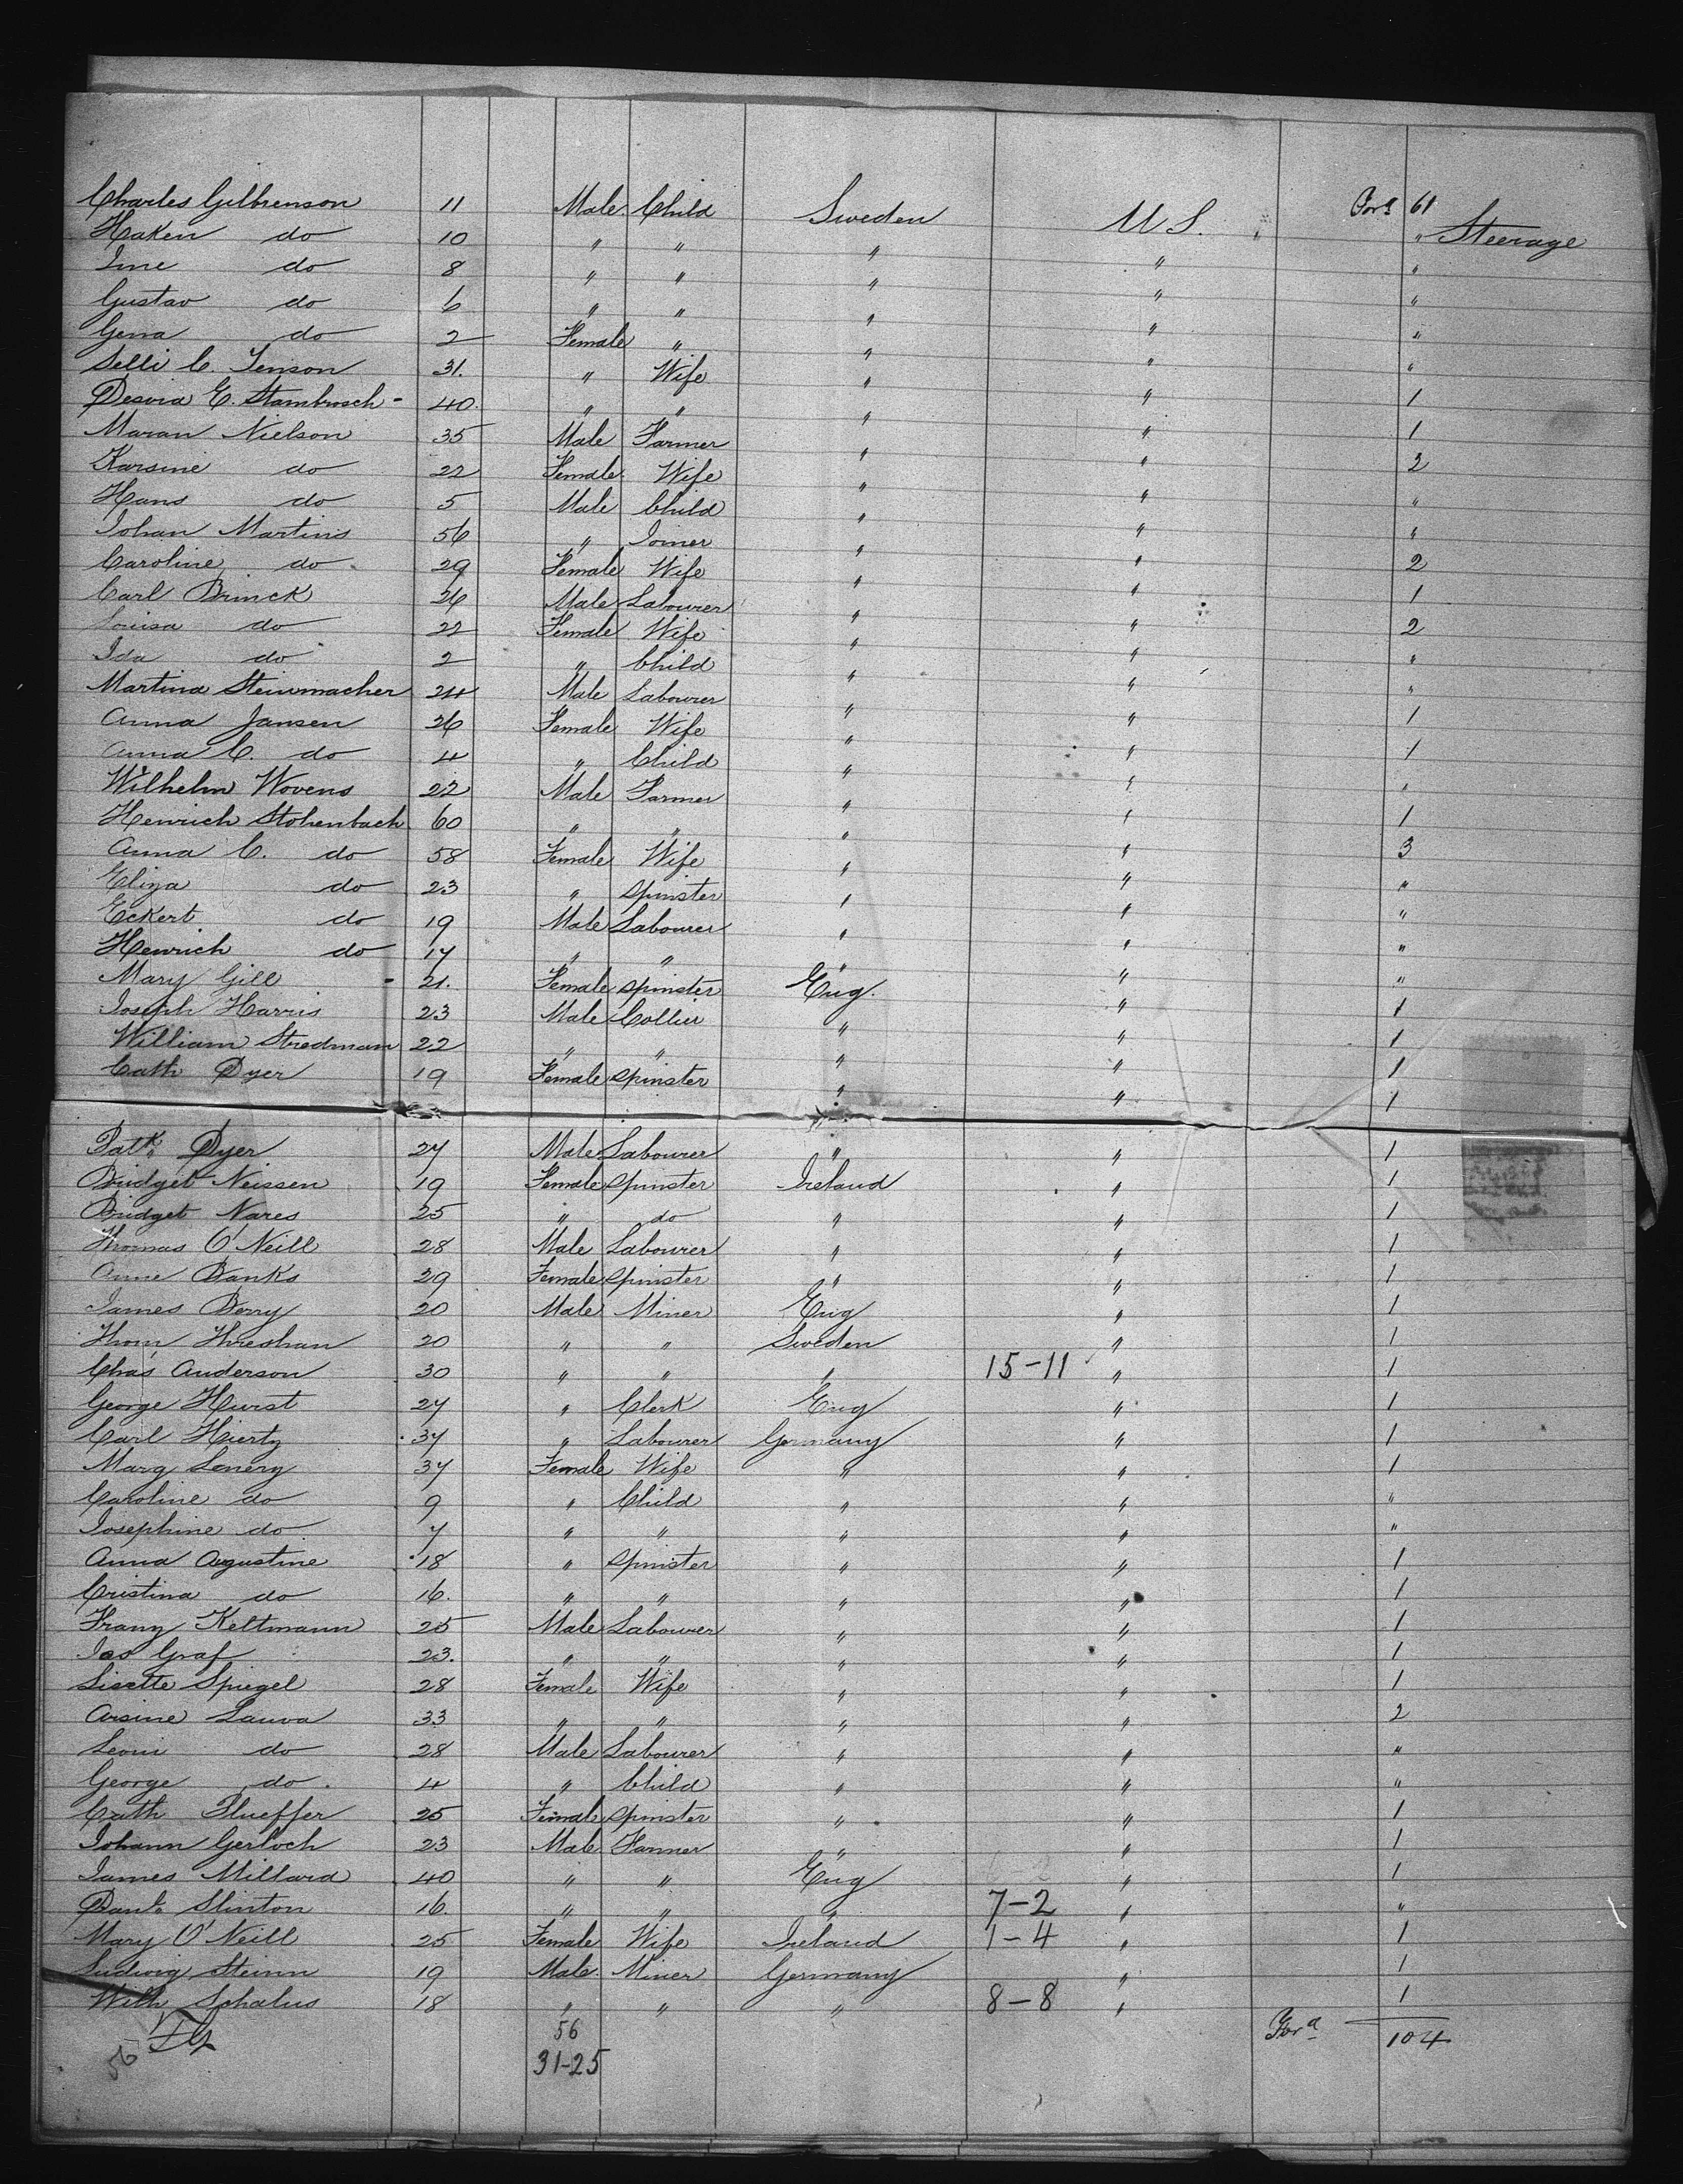 Charles Gilbrenson 11 Male Child Sweden U S. Ford 61 Steerage
Haken do 10 " " " " "
Ime do 8 " " " " "
Gustav do 6 " " " " "
Gerra do 2 Female " " " "
Selli C. Jenson 31. " Wife " " "
Desvia E. Stambrosch - 40. " " " " 1
Maran Nielson 35 Male Farmer " " 1
Karsine do 22 Female Wife " " 2
Hans do 5 Male Child " " "
Johan Martins 56 " Joiner " " "
Caroline do 29 Female Wife " " 2
Carl Brinck 26 Male Labourer " " 1
Louisa do 22 Female Wife " " 2
Ida do 2 " Child " " "
Martina Steinmacher 24 Male Labourer " " "
Anna Jansen 26 Female Wife " " 1
Anna C. do 4 " Child " " 1
Wilhelm Wovens 22 Male Farmer " " "
Henrich Stohenbach 60 " " " " 1
Anna C. do 58 Female Wife " " 3
Eliza do 23 " Spinster " " "
Eckert do 19 Male Labourer " " "
Henrich do 17 " " " " "
Mary Gill - 21. Female Spinster Eng. " "
Joseph Harris 23 Male Collier " " 1
William Stredman 22 " " " " 1
Cath Dyer 19 Female Spinster " " 1
1
Patk Dyer 27 Male Labourer " " 1
Bridget Neissen 19 Female Spinster Ireland " 1
Bridget Nares 25 " do " " 1
Thomas O'Neill 28 Male Labourer " " 1
Anne Banks 29 Female Spinster " " 1
James Berry 20 Male Miner Eng " 1
Thom Threshan 20 " " Sweden " 1
Chas Anderson 30 " " " 15-11 " 1
George Hurst 27 " Clerk Eng " 1
Carl Hierty 37 " Labourer Germany " 1
Marg Lenerg 37 Female Wife " " 1
Caroline do 9 " Child " " "
Josephine do 7 " " " " "
Anna Augustine 18 " Spinster " " 1
Cristina do 16. " " " " 1
Franz Keltmann 25 Male Labourer " " 1
Jas Graf 23. " " " " 1
Lisette Spiegel 28 Female Wife " " 1
Arsine Lauva 33 " " " " 2
Leoni do 28 Male Labourer " " "
George do. 4 " Child " " "
Cath Plueffer 25 Female Spinster " " 1
Johann Gerloch 23 Male Farmer " " 1
James Millard 40 " " Eng " 1
Danl. Slinton 16. " " " 7-2 " "
Mary O'Neill 25 Female Wife Ireland 1-4 " 1
Ludwig Steinn 19 Male. Miner Germany " 1
Wilh Schalus 18 " " " 8-8 " 1
56 56 Ford 104
31-25